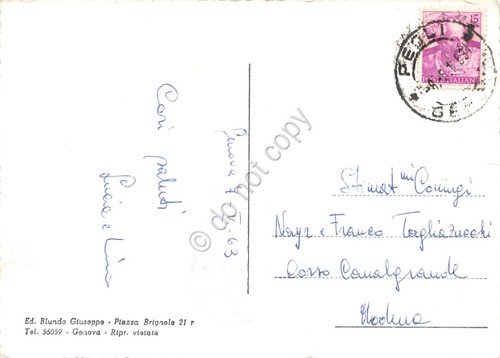 15
PEGLI
ITALIANE
Genova 7
63
Cari saluti
Lucia e Lino
Stimat mi Coniugi
e Franco Tagliazucchi
Corso Canalgrande
Modena
do not copy
Ed. Blundo Giuseppe - Piazza Brignole 21 r
Tel. 56059 - Genova - Ripr. vietata